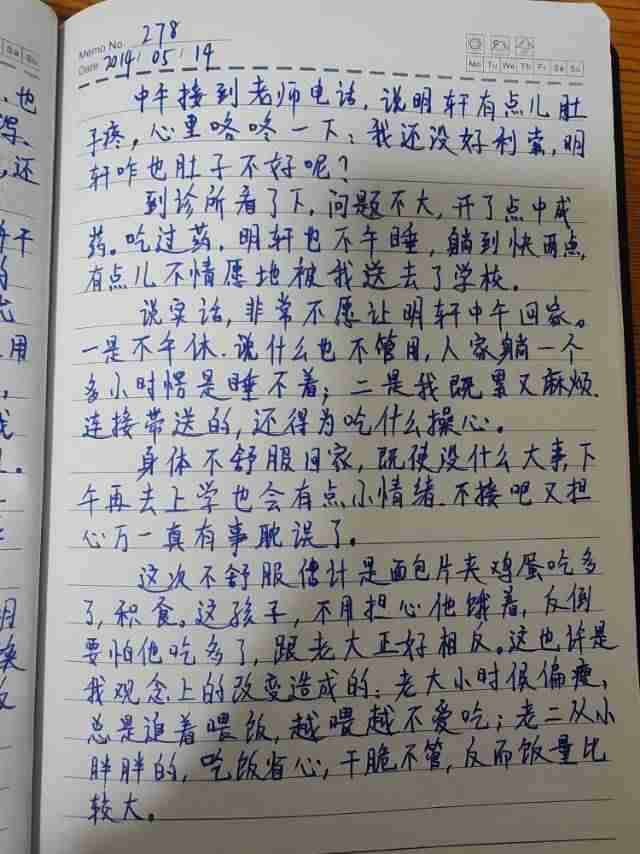 Memo No. 278
Date 2019 / 05 / 14
Mo Tu We Th Fr Sa Su
中午接到老师电话，说明轩有点儿肚
子疼，心里咯咚一下：我还没好利索，明
轩咋也肚子不好呢？
到诊所看了下，问题不大，开了点中成
药。吃过药，明轩也不午睡，躺到快两点，
有点儿不情愿地被我送去了学校。
说实话，非常不愿让明轩中午回家。
一是不午休，说什么也不管用，人家躺一个
多小时愣是睡不着；二是我既累又麻烦，
连接带送的，还得为吃什么操心。
身体不舒服回家，既使没什么大事，下
午再去上学也会有点小情绪，不接吧又担
心万一真有事耽误了。
这次不舒服估计是面包片夹鸡蛋吃多
了，积食。这孩子，不用担心他饿着，反倒
要怕他吃多了，跟老大正好相反。这也许是
我观念上的改变造成的：老大小时候偏瘦，
总是追着喂饭，越喂越不爱吃；老二从小
胖胖的，吃饭省心，干脆不管，反而饭量比
较大。